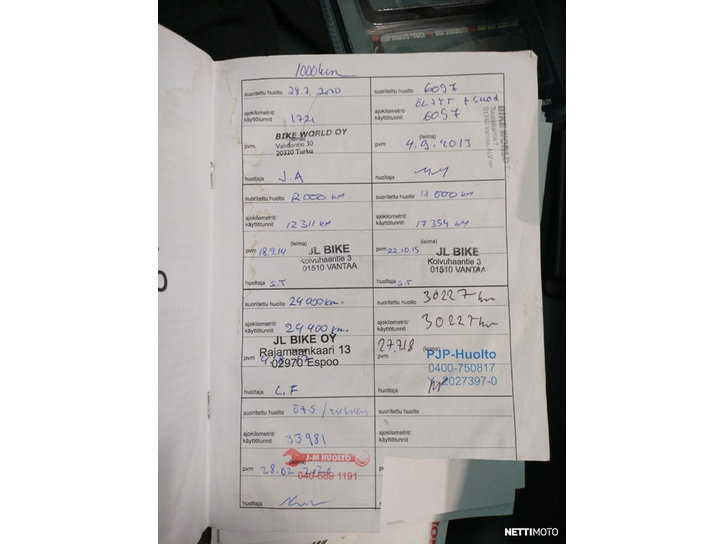 1000 km
suoritettu huolto 28.7.2010
ajokilometrit/
käyttötunnit 1721
BIKE WORLD OY
(leima)
Vahdontie 30
20320 Turku
pvm
huoltaja J.A
suoritettu huolto 6097
ÖLJYT + suod
ajokilometrit/
käyttötunnit 6097
BIKE WORLD
(leima)
pvm 4.9.2013
huoltaja
suoritettu huolto 12000 KM
ajokilometrit/
käyttötunnit 12311 KM
(leima)
pvm 18.9.14
JL BIKE
Koivuhaantie 3
01510 VANTAA
huoltaja S.T
suoritettu huolto 18 000 KM
ajokilometrit/
käyttötunnit 17354 KM
(leima)
pvm 22.10.15
JL BIKE
Koivuhaantie 3
01510 VANTAA
huoltaja S.T
suoritettu huolto 24 000 km.
ajokilometrit/
käyttötunnit 24 400 km.
JL BIKE OY
Rajamaankaari 13
02970 Espoo
pvm
huoltaja C.F
suoritettu huolto 30227 km
ajokilometrit/
käyttötunnit 30227 km
27.7.18
(leima)
pvm
PJP-Huolto
0400-750817
Y-2027397-0
huoltaja
suoritettu huolto
ajokilometrit/
käyttötunnit 33981
(leima)
J-M HUOLTO
040-689 1191
pvm 28.02 2020
huoltaja
suoritettu huolto
ajokilometrit/
käyttötunnit
NETTIMOTO